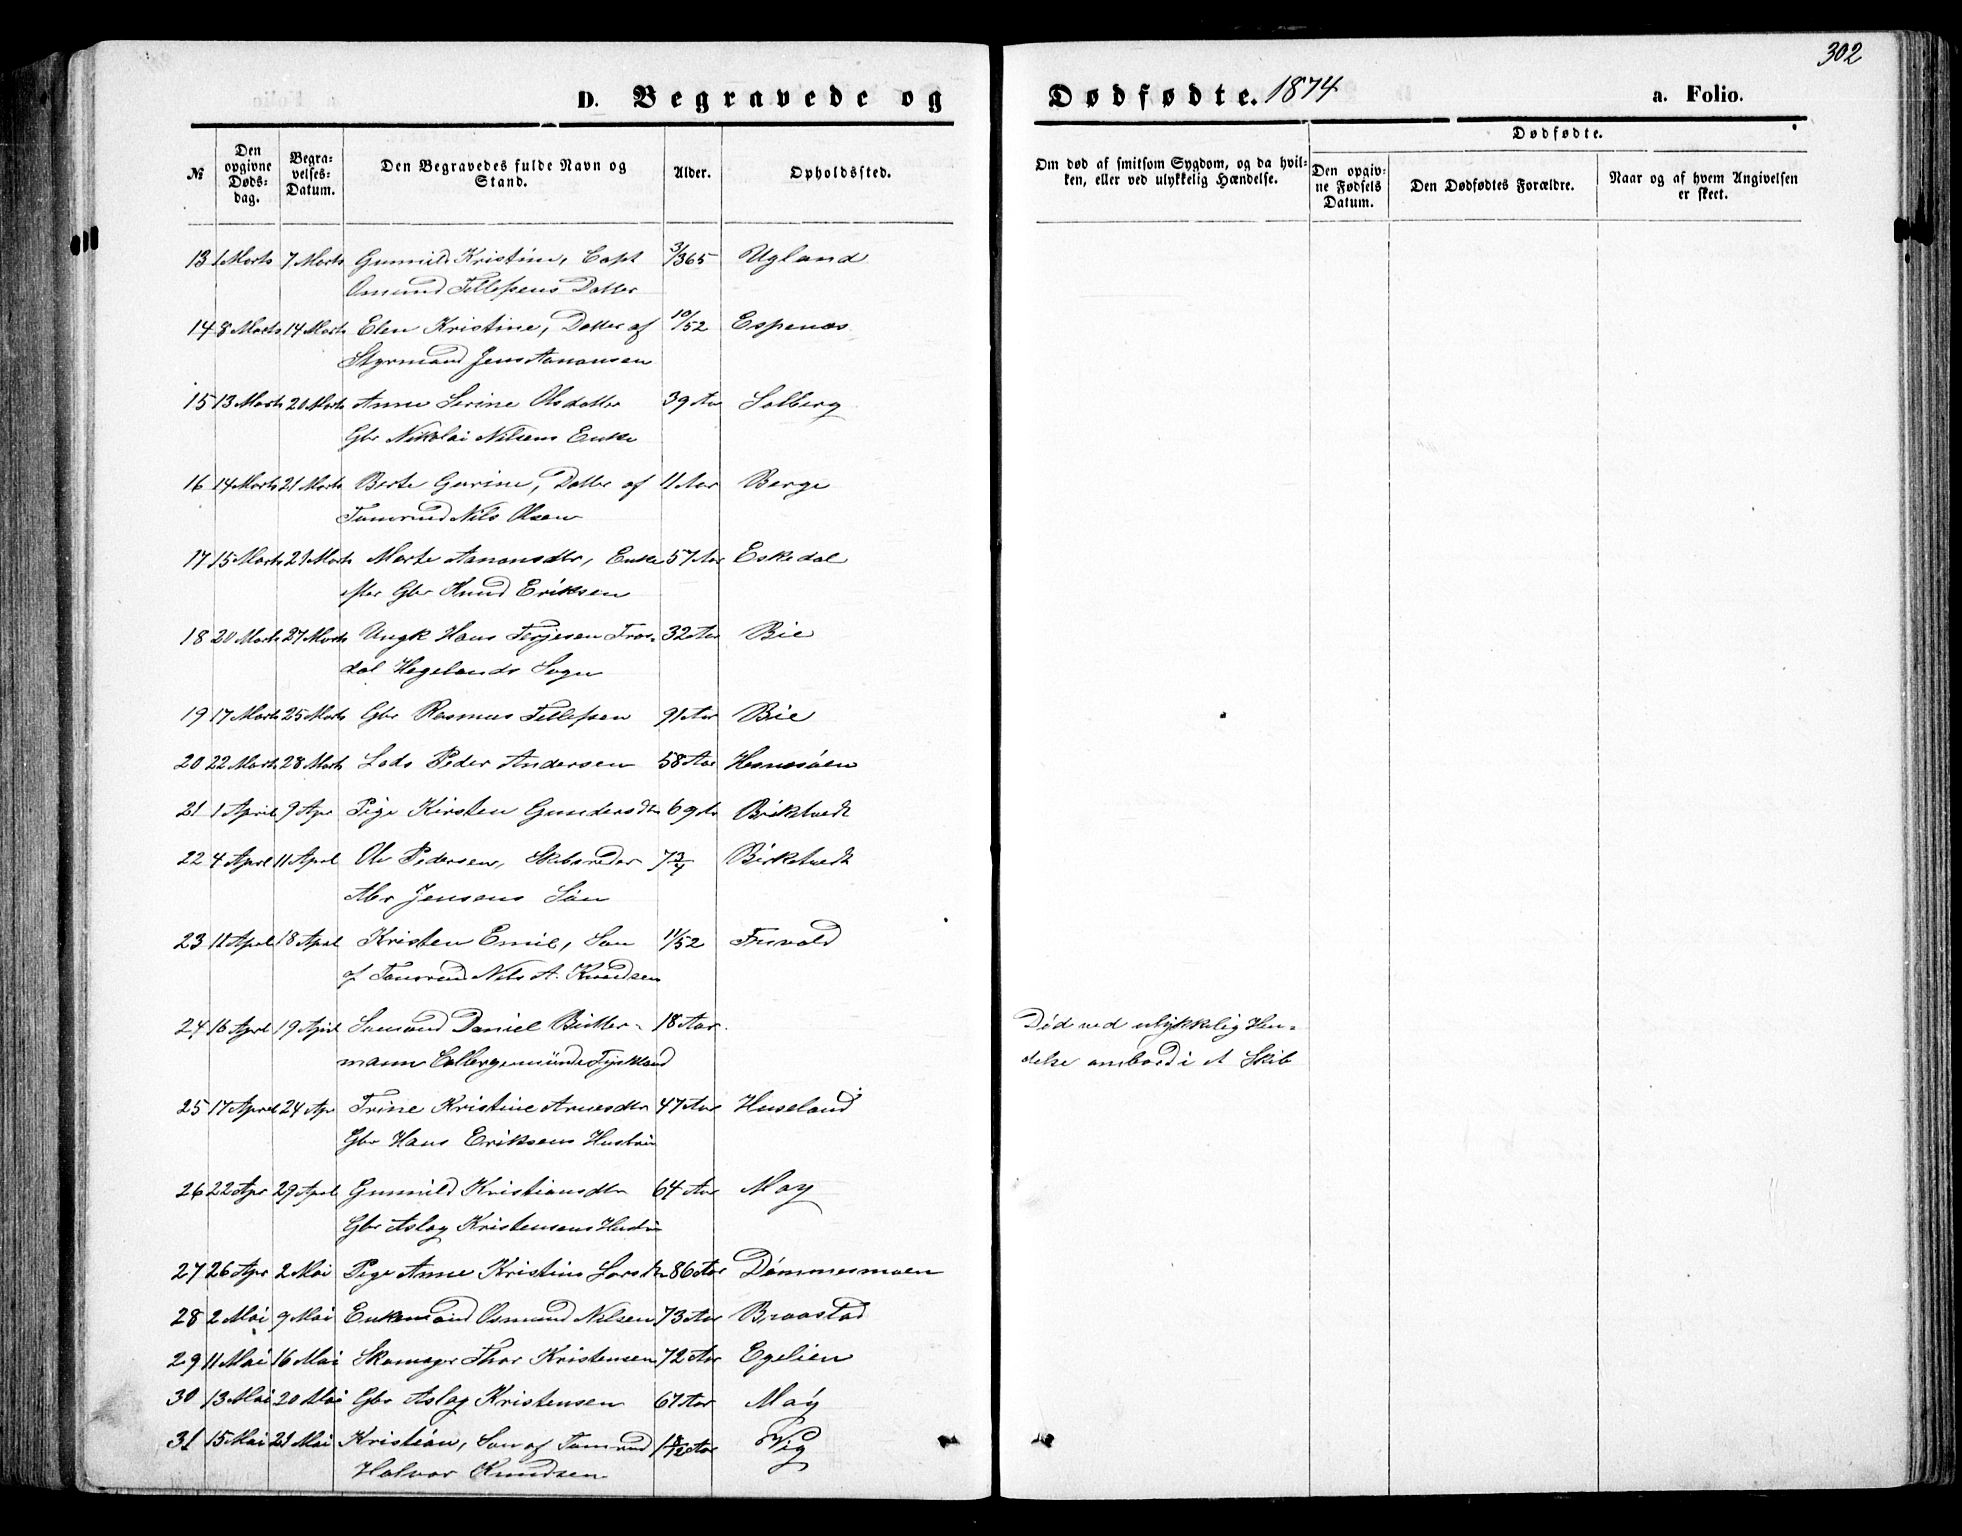 302
D. Begravede og Dødfødte. 1874 a. Folio.
№
Den opgivne Døds-dag.
Begra-velses-Datum.
Den Begravedes fulde Navn og Stand.
Alder.
Opholdssted.
Om død af smitsom Sygdom, og da hvil-ken, eller ved ulykkelig Hændelse.
Dødfødte.
Den opgiv-ne Fødsels Datum.
Den Dødfødtes Forældre.
Naar og af hvem Angivelsen er skeet.
13 1 Marts 7 Marts Gunnild Kristine, Capt 3/365 Ugland
Osmund Tellefsens Datter
14 8 Marts 14 Marts Elen Kristine, Datter af 10/52 Espenæs
Styrmand Jens Aanonsen
15 13 Marts 20 Marts Anne Serine Olsdatter 39 Aar Solberg
Gbr Nikolai Nilsens Enke
16 14 Marts 21 Marts Berte Gurine, Datter af 11 Aar Berge
Tømrmd Nils Olsen
17 15 Marts 21 Marts Marte Aanonsdtr, Enke 57 Aar Eskedal
efter Gbr Knud Eriksen
18 20 Marts 27 Marts Ungk Hans Terjesen Tros- 32 Aar Bie
dal Hegelands Sogn
19 17 Marts 25 Marts Gbr Rasmus Tellefsen 91 Aar Bie
20 22 Marts 28 Marts Lods Peder Andersen 58 Aar Hesnesøen
21 1 April 9 Apr Pige Kirsten Gundersdtr 69 Ar Birktvedt
22 4 Aprl 11 Aprl Ole Pedersen, Skibsreder 7 3/4 Birketvedt
Abr Jensens Søn
23 11 Aprl 18 Aprl Kristen Emil, Søn 11/52 Frivold
af Tømrmd Nils A. Knudsen
24 16 Aprl 19 Aprl Sømand Daniel Bitter- 18 Aar Død ved ulykkelig Hen-
mann Colbergermünde Tyskland delse ombord i et Skib
25 17 Aprl 24 Apr Trine Kristine Arnesdtr 47 Aar Huseland
Gbr Hans Eriksens Hustru
26 22 Apr 29 Aprl Gunnild Kristiansdtr 64 Aar Moy
Gbr Aslag Kristensens Hustru
27 26 Apr 2 Mai Pige Anne Kristine Larsdtr 86 Aar Dømmesmoen
28 2 Mai 9 Mai Enkemand Osmund Nilsen 73 Aar Braastad
29 11 Mai 16 Mai Skomager Thor Kristensen 72 Aar Egelien
30 13 Mai 20 Mai Gbr Aslag Kristensen 67 Aar Moy
31 15 Mai 21 Mai Kristian, Søn af Tømrmd 1 8/12 Aar Vig
Halvor Knudsen